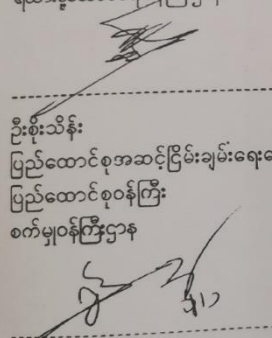 ဦးစိုးသိန်း
ပြည်ထောင်စုအဆင့်ငြိမ်းချမ်းရေး
ပြည်ထောင်စုဝန်ကြီး
စက်မှုဝန်ကြီးဌာန